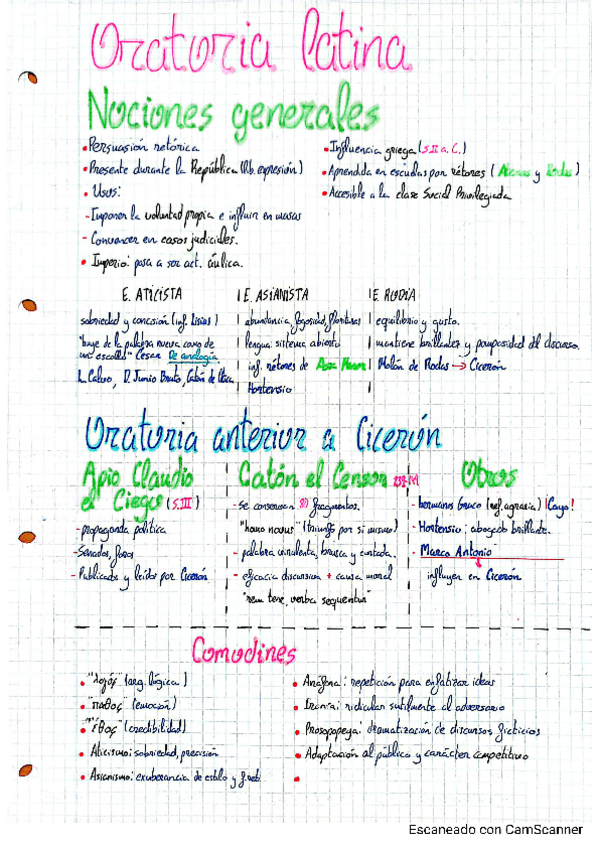 Oratoria latina
Nociones generales
• Persuasión retórica
• Presente durante la República (lib. expresión)
• Usos:
- Imponer la voluntad propia e influir en masas
- Convencer en casos judiciales.
• Imperio: pasa a ser act. áulica.
• Influencia griega (S.II a.C.)
• Aprendida en escuelas por rétores (Atenas y Rodas)
• Accesible a la clase Social Privilegiada
E. ATICISTA
sobriedad y concisión (inf. Lisias)
"huye de la palabra nueva como de
un escollo" César De analogía
L. Calvo, D. Junio Bruto, Catón de Útica
E. ASIANISTA
abundancia, fogosidad, florituras
lengua: sistema abierto
inf. rétores de Asia Menor
Hortensio
E. RODIA
equilibrio y gusto.
mantiene brillantez y pomposidad del discurso.
Molón de Rodas → Cicerón
Oratoria anterior a Cicerón
Apio Claudio
el Ciego (S.III)
- propaganda política
- Senados, foros
- Publicado y leídos por Cicerón
Catón el Censor
- se conservan 80 fragmentos.
"homo novus" (triunfo por sí mismo)
- palabra virulenta, brusca y cortada.
- eficacia discursiva + causa moral
"rem tene, verba sequentur"
Otros
- hermanos Graco (ref. agraria) ¡Cayo!
- Hortensio: abogado brillante.
- Marco Antonio
influyen en Cicerón
Comodines
• "λογός" (arg. lógica)
• "παθος" (emoción)
• "ἔθος" (credibilidad)
• Aticismo: sobriedad, precisión
• Asianismo: exuberancia de estilo y
• Anáfora: repetición para enfatizar ideas
• Ironía: ridiculizar sutilmente al adversario
• Prosopopeya: dramatización de discursos ficticios
• Adaptación al público y carácter competitivo
•
Escaneado con CamScanner